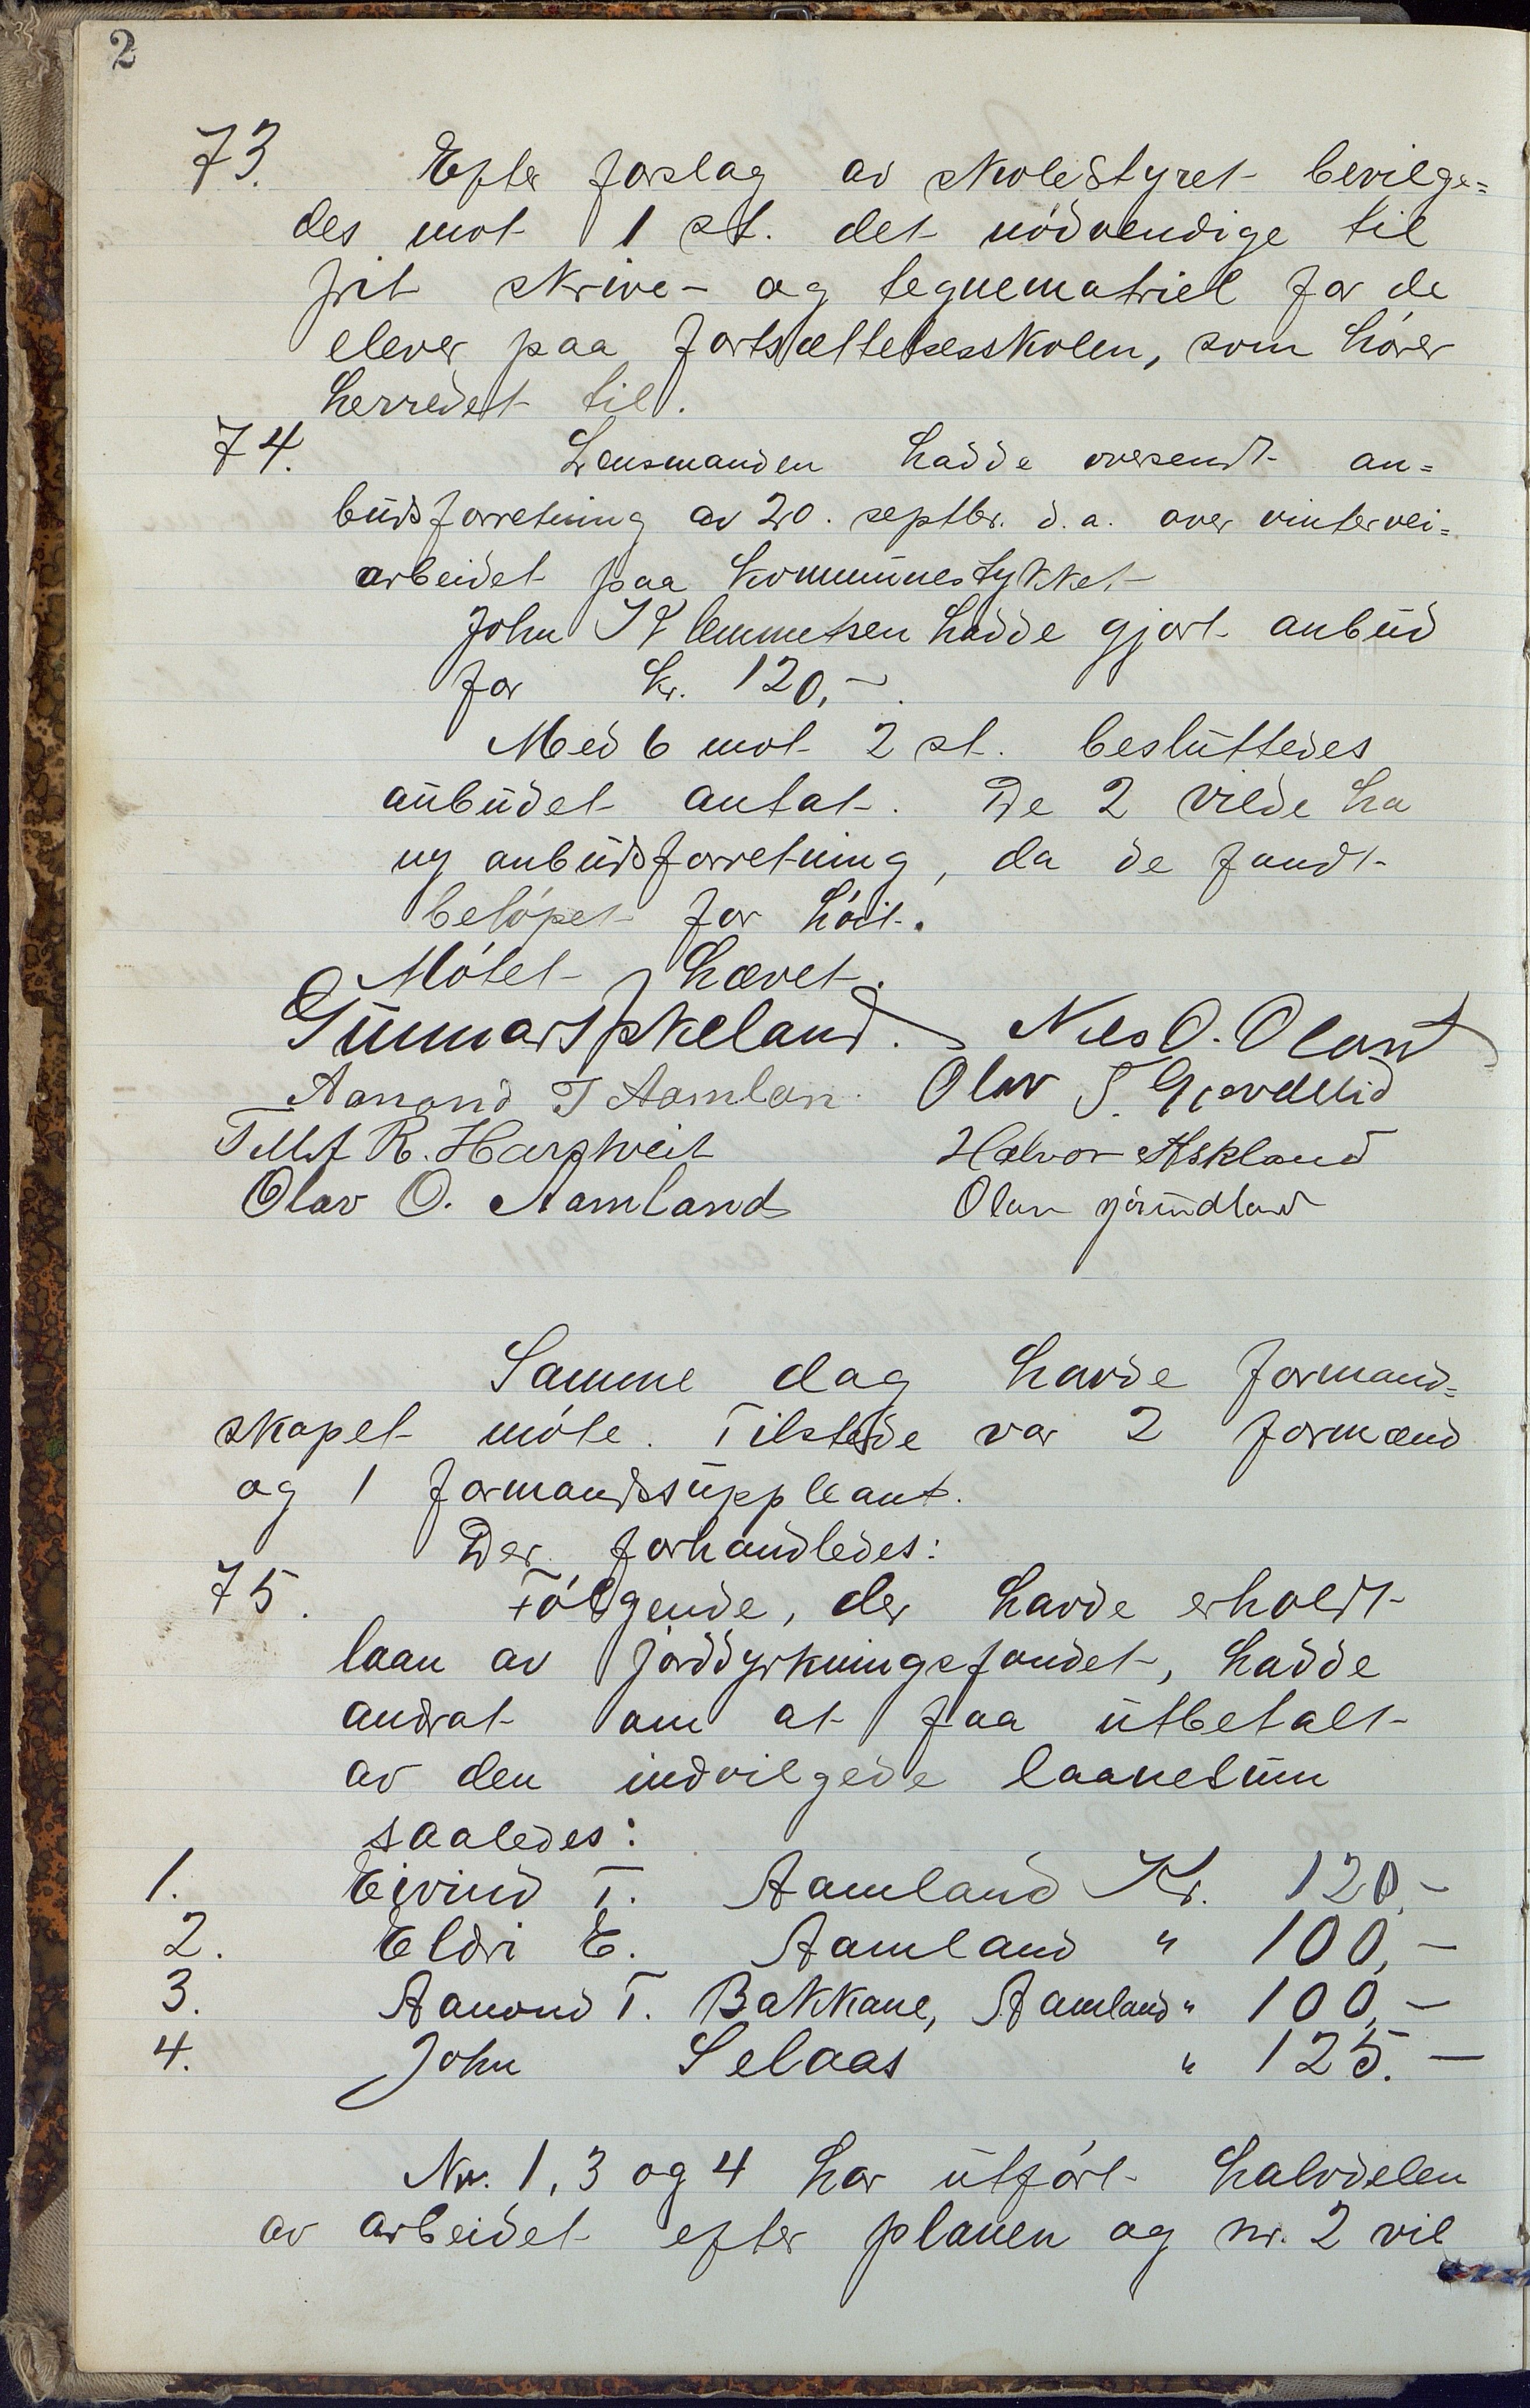 2
73. Efter forslag av skolestyret bevilge=
des mot 1 st. det nödvendige til
frit skrive- og tegnematriel for de
elever paa fortsættelsesskolen, som hörer
herredet til.
74. Lensmanden hadde oversendt an=
budsforretning av 20. septbr. d.a. over vintervei=
arbeidet paa kommunestykket
John Klemmetsen hadde gjort anbud
for kr. 120,-.
Med 6 mot 2 st. besluttedes
anbudet antat. De 2 vilde ha
ny anbudsforretning, da de fandt
belöpet for höit.
Mötet hævet.
Gunnar Askeland. Nils O. Oland
Aanond T Aamlan. Olav T. Gjövdllid
Tellef R. Hargtveit Halvor Askland
Olav O. Aamland Olav Jörundland
Samme dag havde formand=
skapet möte. Tilstede var 2 formænd
og 1 formandssuppleant.
Der forhandledes:
75. Fölgende, der havde erholdt
laan av jorddyrkningsfondet, hadde
andrat om at faa utbetalt
av den indvilgede laanesum
saaledes:
1. Eivind T. Aamland Kr. 120,-
2. Eldri E. Aamland " 100,-
3. Aanond T. Bakkane, Aamland " 100,-
4. John Selaas " 125.-
Nr. 1, 3 og 4 har utfört halvdelen
av arbeidet efter planen og nr. 2 vil